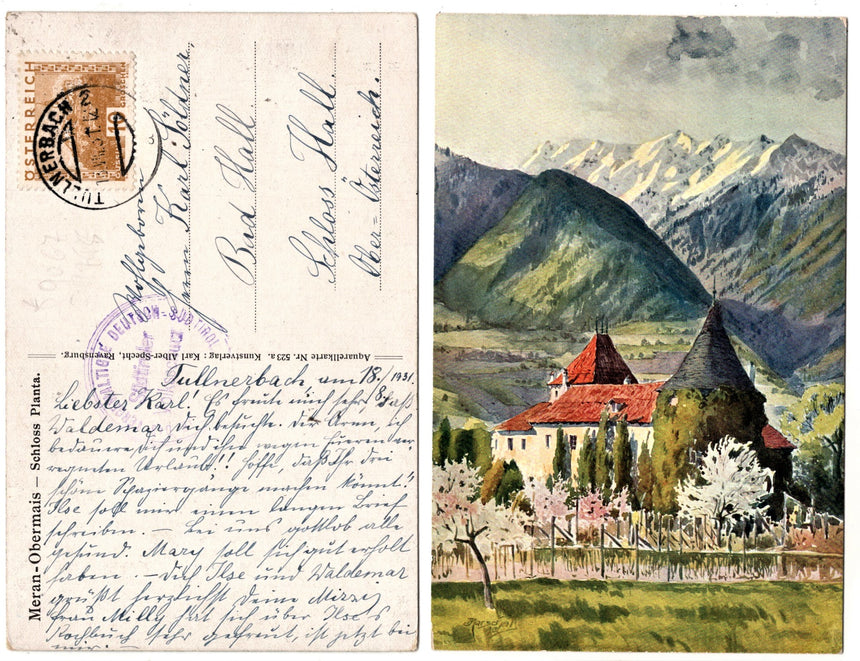 ÖSTERREICH
10
GROSCHEN
TULLNERBACH 2
Wohlgeboren
Herrn Karl Söldner
Bad Hall
Schloss Hall
Ober=Österreich.
DEUTSCH-SÜDTIROL
Südtiroler
Aquarellkarte Nr. 523a. Kunstverlag: Karl Alber-Specht, Ravensburg.
Meran-Obermais — Schloss Planta.
Tullnerbach, am 18./8. 1931.
Liebster Karl! Es freute mich sehr, daß
Waldemar Dich besuchte. Die Armen, ich
bedauere Dich und ihn wegen Eueren ver-
regneten Urlaub!! Hoffe, daß Ihr drei
schöne Spaziergänge machen könnt!!
Ilse soll mir einen langen Brief
schreiben. – Bei uns gottlob alle
gesund. Mary soll sich gut erholt
haben. – Dich, Ilse und Waldemar
grüßt herzlichst Deine Mizzi
Frau Milly hat sich über Ilse's
Kochbuch sehr gefreut, ist jetzt bei
mir. –